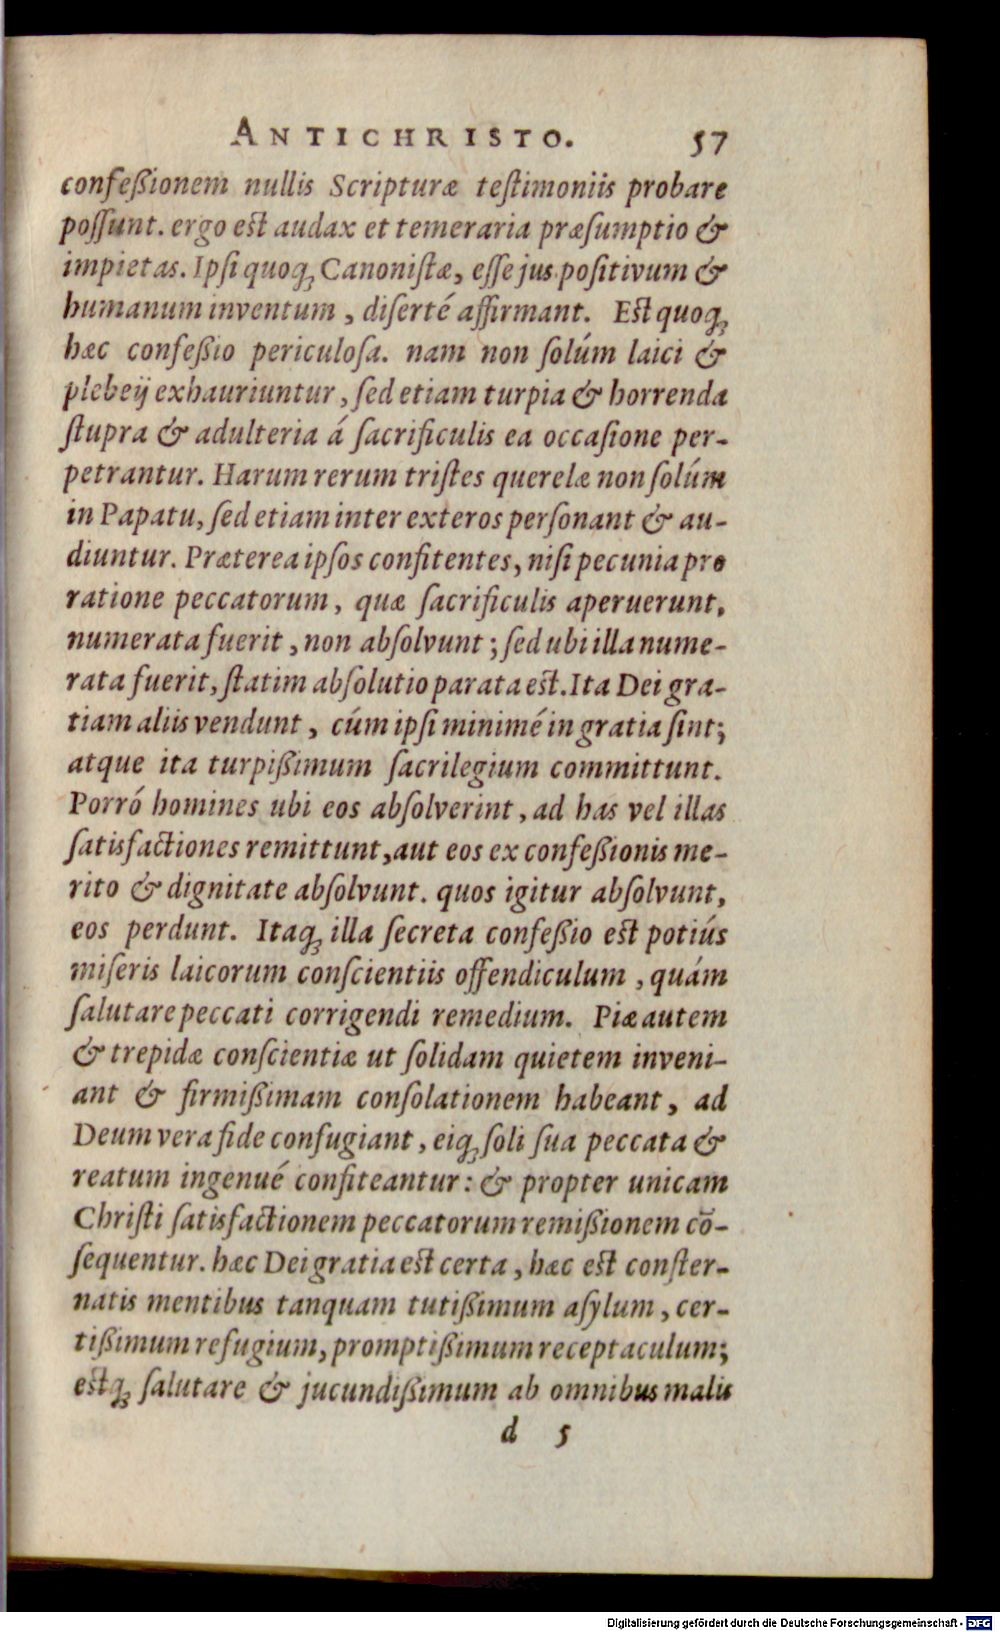 ANTICHRISTO. 57
confeßionem nullis Scripturæ teſtimoniis probare
poſſunt. ergo eſt audax et temeraria præſumptio &
impietas. Ipſi quoq; Canoniſtæ, eſſe jus poſitivum &
humanum inventum, diſerté affirmant. Eſt quoq;
hæc confeßio periculoſa. nam non ſolúm laici &
plebeij exhauriuntur, ſed etiam turpia & horrenda
ſtupra & adulteria á ſacrificulis ea occaſione per-
petrantur. Harum rerum triſtes querelæ non ſolúm
in Papatu, ſed etiam inter exteros perſonant & au-
diuntur. Præterea ipſos confitentes, niſi pecunia pro
ratione peccatorum, quæ ſacrificulis aperuerunt,
numerata fuerit, non abſolvunt; ſed ubi illa nume-
rata fuerit, ſtatim abſolutio parata eſt. Ita Dei gra-
tiam aliis vendunt, cúm ipſi minimé in gratia ſint;
atque ita turpißimum ſacrilegium committunt.
Porró homines ubi eos abſolverint, ad has vel illas
ſatisfactiones remittunt, aut eos ex confeßionis me-
rito & dignitate abſolvunt. quos igitur abſolvunt,
eos perdunt. Itaq; illa ſecreta confeßio eſt potiús
miſeris laicorum conſcientiis offendiculum, quám
ſalutare peccati corrigendi remedium. Piæ autem
& trepidæ conſcientiæ ut ſolidam quietem inveni-
ant & firmißimam conſolationem habeant, ad
Deum vera fide confugiant, eiq; ſoli ſua peccata &
reatum ingenué confiteantur: & propter unicam
Chriſti ſatisfactionem peccatorum remißionem cō-
ſequentur. hæc Dei gratia eſt certa, hæc eſt conſter-
natis mentibus tanquam tutißimum aſylum, cer-
tißimum refugium, promptißimum receptaculum;
eſtq; ſalutare & jucundißimum ab omnibus malis
d 5
Digitalisierung gefördert durch die Deutsche Forschungsgemeinschaft - DFG